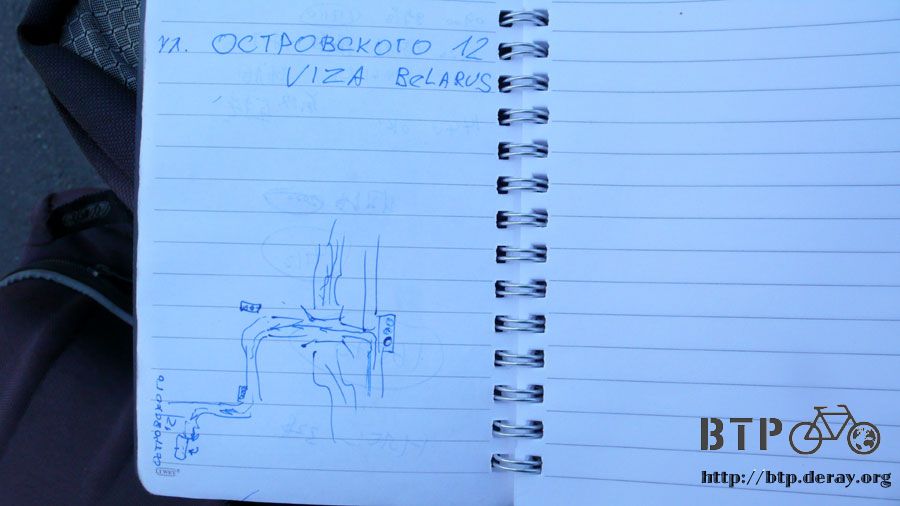 ул. ОСТРОВСКОГО 12
VIZA BELARUS
ОСТРОВСКОГО
12
BTP
http://btp.deray.org